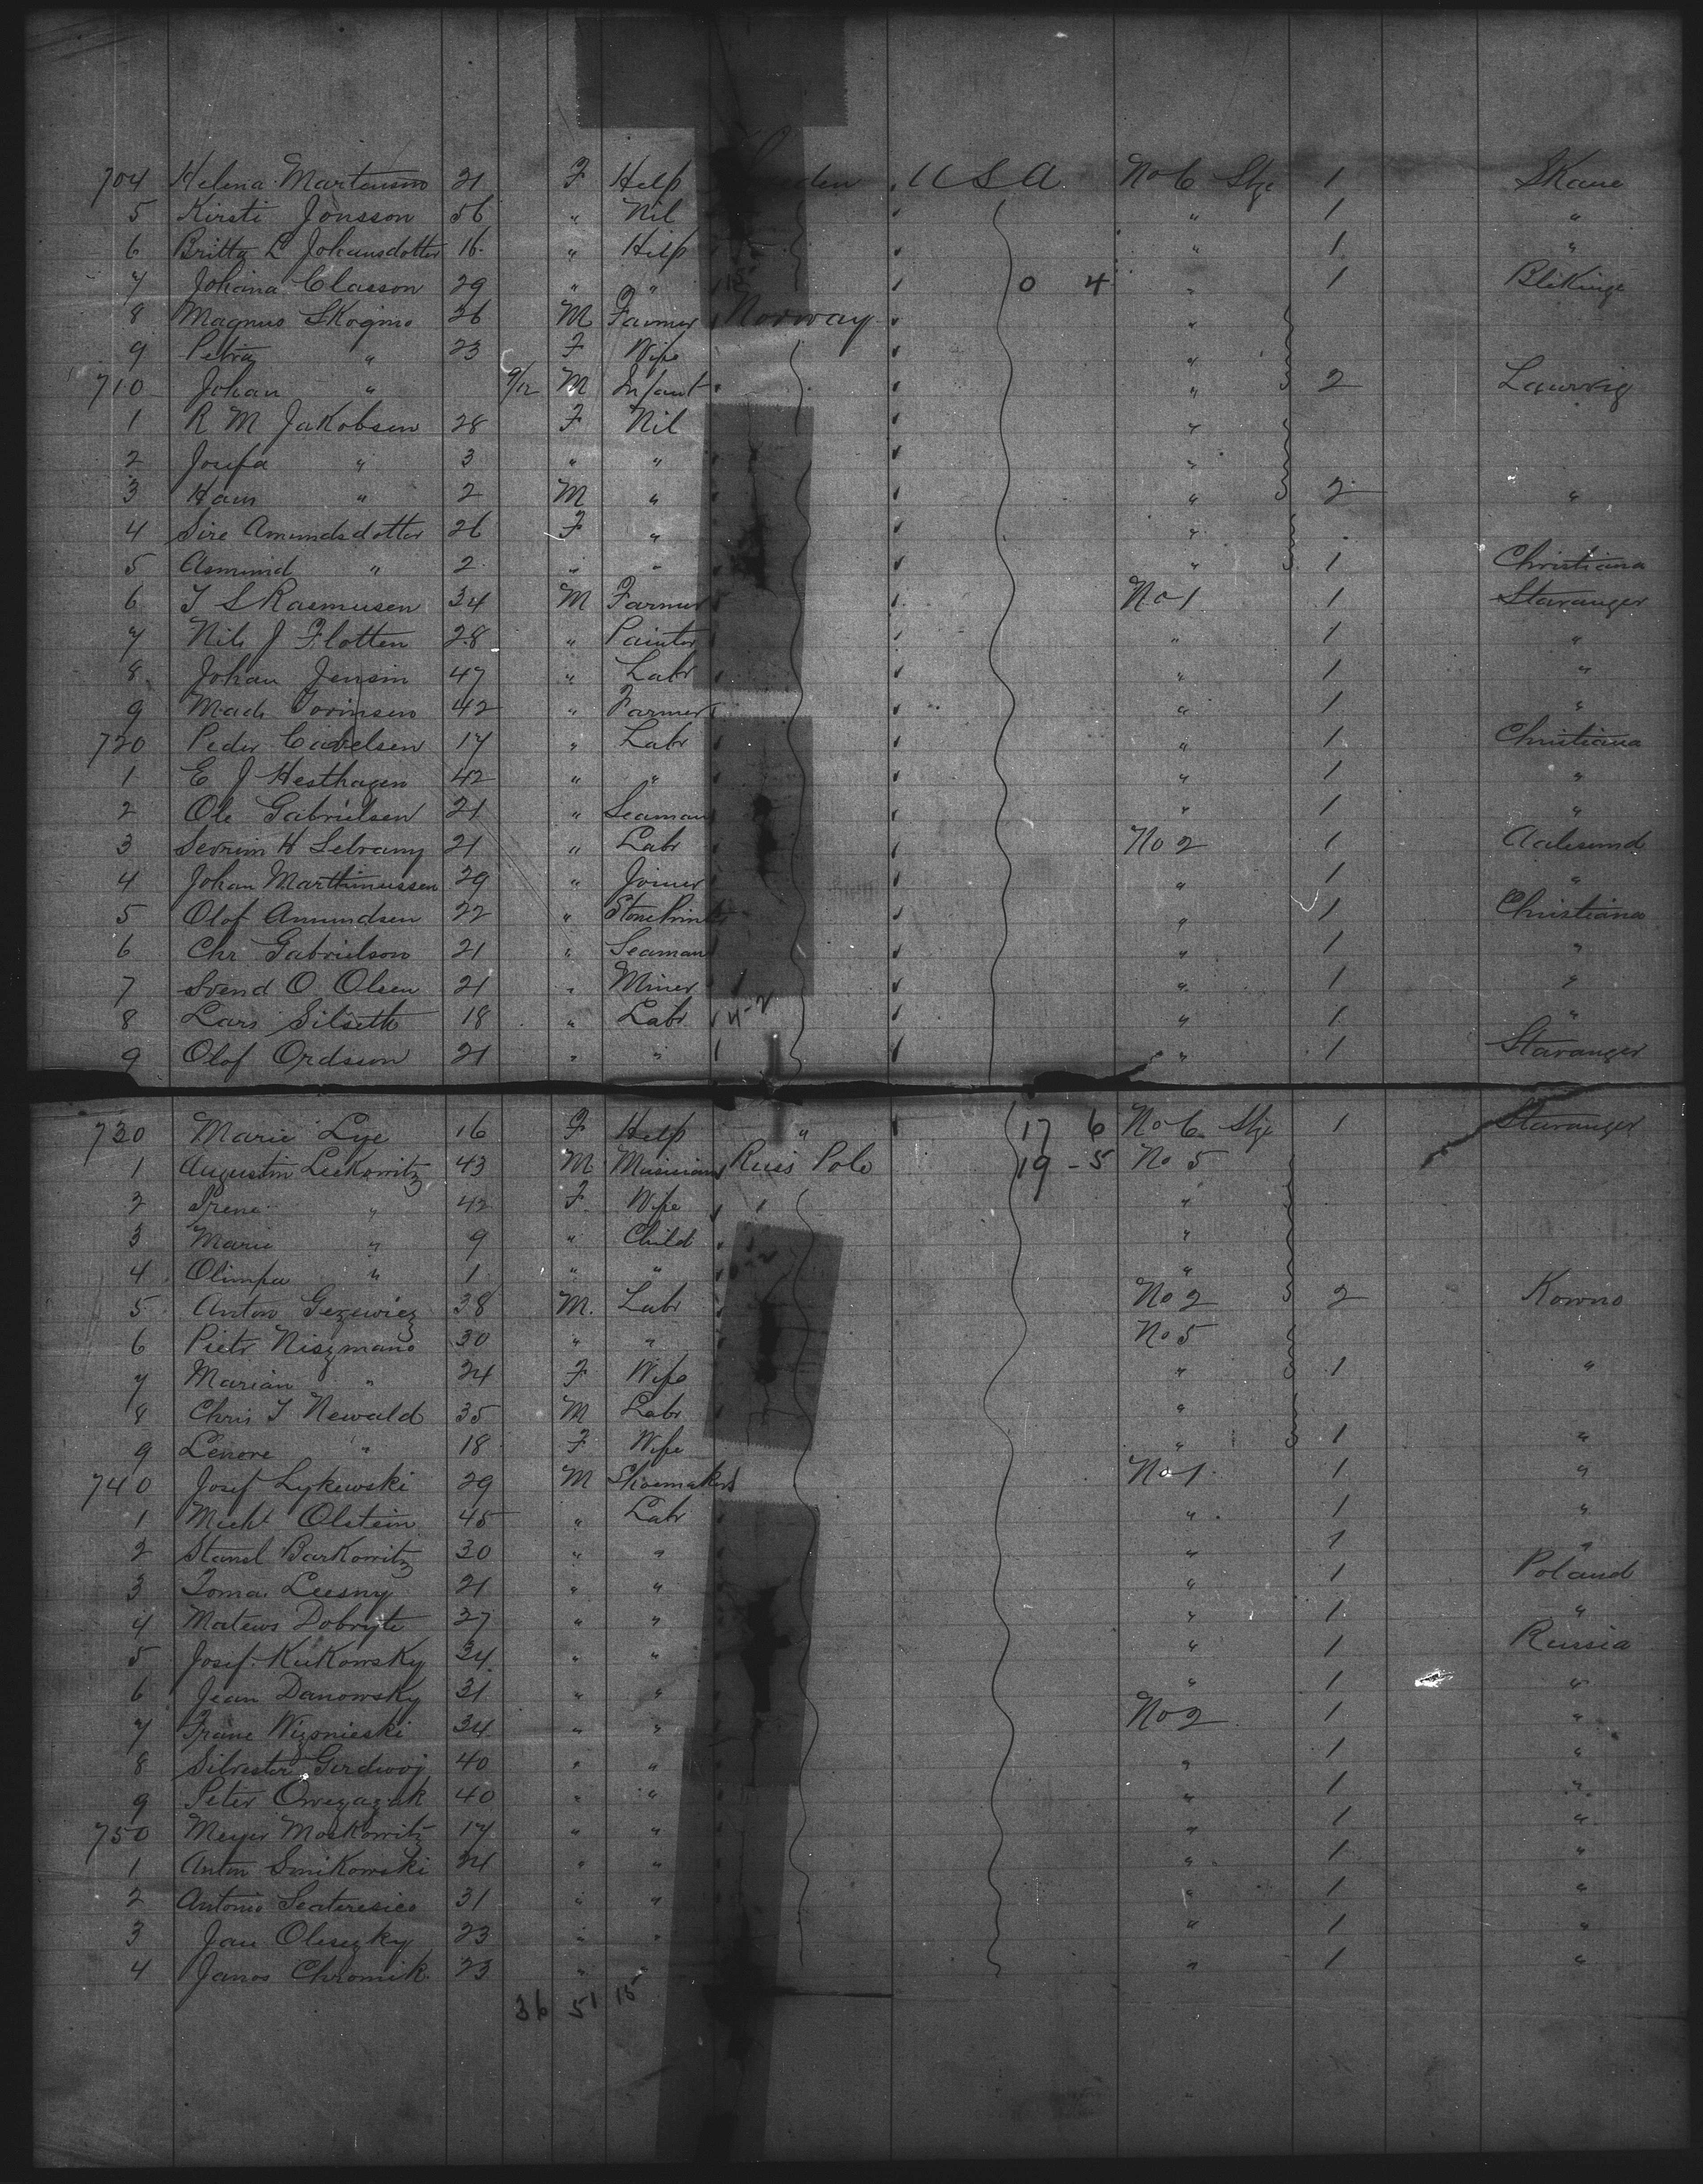 704 Helena Martensson 21 F Help Sweden U S A No 6 Stge 1 Skane
5 Kirsti Jonsson 56 " Nil " 1 "
6 Britta L Johansdotter 16 " Help " 1 "
7 Johana Classon 29 " " 0 4 " 1 Blekinge
8 Magnus Skogmo 26 M Farmer Norway "
9 Petra " 23 F Wife "
710 Johan " 9/12 M Infant " 2 Laurvig
1 R M Jakobsen 28 F Nil "
2 Josefa " 3 " " "
3 Hans " 2 M " " 2 "
4 Sire Amundsdotter 26 F " "
5 Asmind " 2 " " " 1 Christiana
6 T S Rasmusen 34 M Farmer No 1 1 Stavanger
7 Nils J Flotten 28 " Painter " 1 "
8 Johan Jensen 47 " Labr " 1 "
9 Mads 42 " Farmer " 1 "
720 Peder 17 " Labr " 1 Christiana
1 E J Hesthagen 42 " " " 1 "
2 Ole Gabrielsen 21 " Seaman " 1 "
3 H 21 " Labr No 2 1 Aalesund
4 Johan Marthinussen 29 " Joiner " 1 "
5 Olof Amundsen 22 " " 1 Christiana
6 Chr Gabrielson 21 " Seaman " 1 "
7 Svend O Olsen 21 " Miner " 1 "
8 Lars Silseth 18 " Labr " 1 "
9 Olof Ordsson 21 " " " 1 Stavanger
730 Marie Lye 16 F Help " 17 6 No 6 Stge 1 Stavanger
1 Augustin Leskowitz 43 M Musician Russ Polo 19 - 5 No 5
2 Irene " 42 F Wife "
3 Marie " 9 " Child "
4 Olimpa " 1 " " "
5 Anton Gezewicz 38 M Labr No 2 2 Kowno
6 Pietr Niszmano 30 " " No 5
7 Marian " 24 F Wife " 1 "
8 Chris T Newald 35 M Labr "
9 Lenore " 18 F Wife " 1 "
740 Josef Lykewski 29 M Shoemaker No 1 1 "
1 Michl Olstein 45 " Labr " 1 "
2 Stansl Barkowitz 30 " " " 1 "
3 Toma Leesny 21 " " " 1 Poland
4 Matews Dobryte 27 " " " 1 "
5 Josef Kukowsky 34 " " " 1 Russia
6 Jean Danowsky 31 " " " 1 "
7 Franc Wizonieski 34 " " No 2 1 "
8 Silvester Girdwoj 40 " " " 1 "
9 Peter 40 " " " 1 "
750 Meyer Moskowitz 17 " " " 1 "
1 Anton Smikowski 24 " " " 1 "
2 Antonio 31 " " " 1 "
3 Jan Olesezky 23 " " " 1 "
4 Janos Chromik 23 " " " 1 "
36 51 15